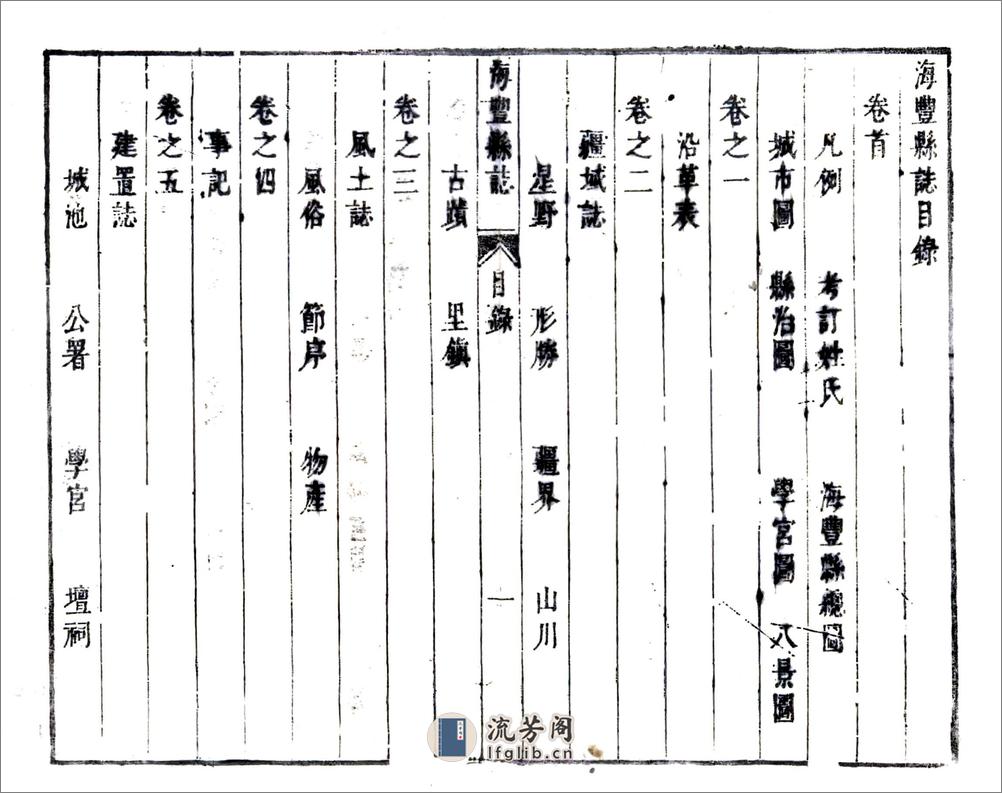 海豐縣誌目錄
卷首
凡例 考訂姓氏 海豐縣總圖
城市圖 縣治圖 學宮圖 八景圖
卷之一
沿革表
卷之二
疆域誌
星野 形勝 疆界 山川
海豐縣誌 目錄 一
古蹟 里鎮
卷之三
風土誌
風俗 節序 物產
卷之四
事記
卷之五
建置誌
城池 公署 學宮 壇祠
流芳阁
lfglib.cn